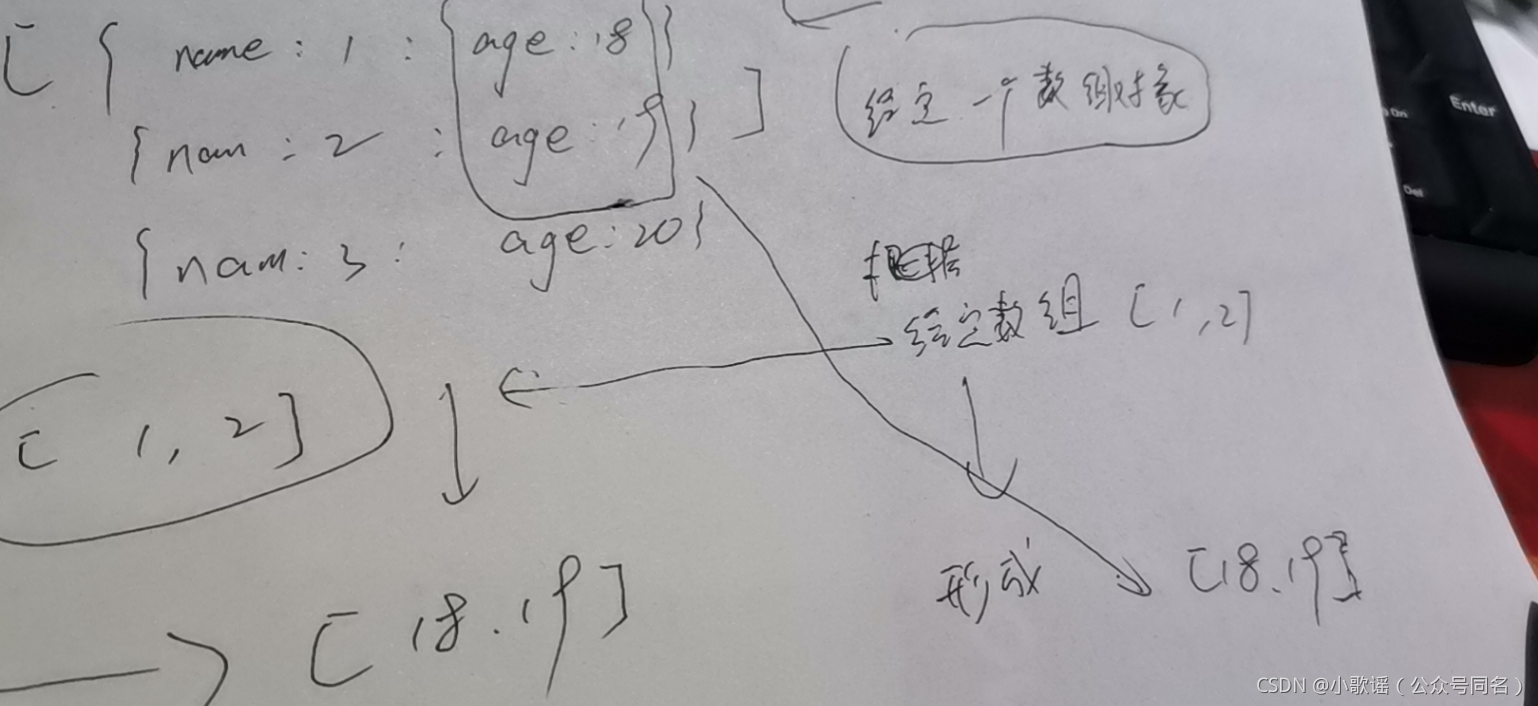 [ { name : 1 : { age : 18 } }
{ nam : 2 : age : 19 } ]
给定一个数组对象
{ nam : 3 : age : 20 }
根据
给定数组 [ 1 , 2 ]
[ 1 , 2 ]
形成 [ 18 . 19 ]
[ 18 . 19 ]
Enter
Del
CSDN @小歌谣（公众号同名）